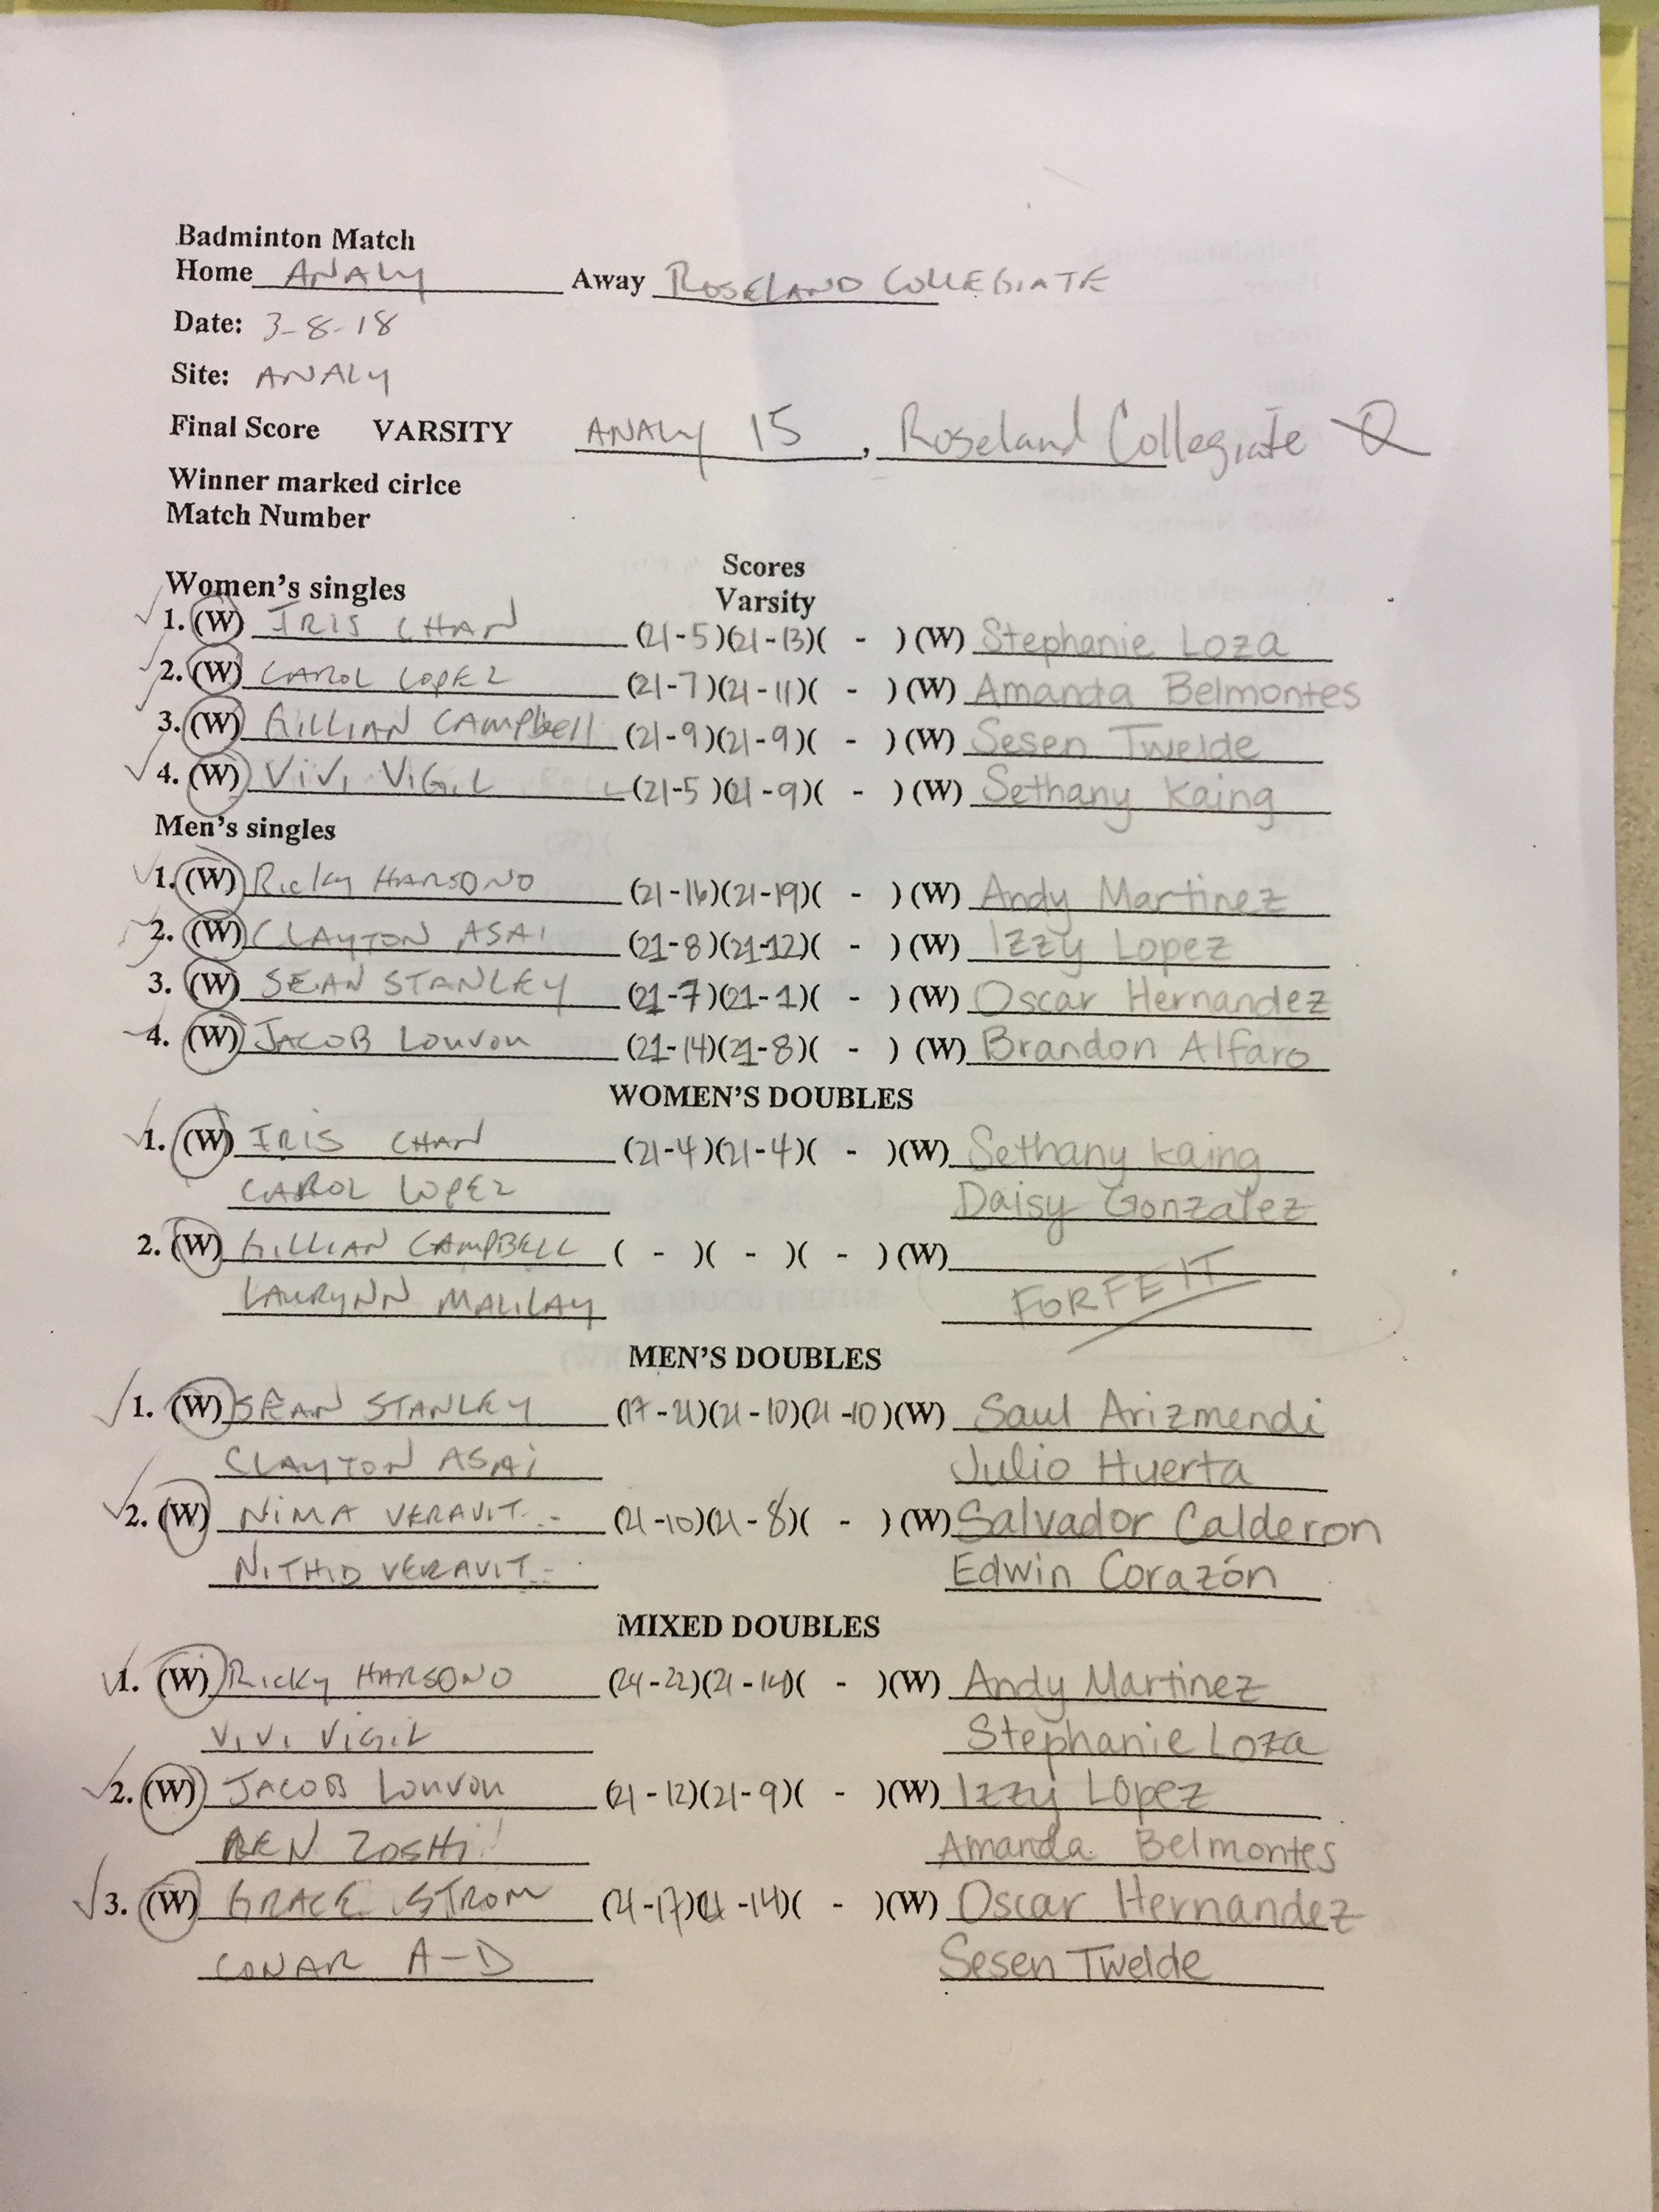 Badminton Match
Home ANALY Away ROSELAND COLLEGIATE
Date: 3-8-18
Site: ANALY
Final Score VARSITY ANALY 15, Roseland Collegiate 0
Winner marked cirlce
Match Number
Scores
Women's singles Varsity
1. (W) IRIS CHAN (21-5)(21-13)( - ) (W) Stephanie Loza
2. (W) CAROL LOPEZ (21-7)(21-11)( - ) (W) Amanda Belmontes
3. (W) GILLIAN CAMPbell (21-9)(21-9)( - ) (W) Sesen Twelde
4. (W) ViVi ViGiL (21-5)(21-9)( - ) (W) Sethany Kaing
Men's singles
1. (W) Ricky HARSONO (21-16)(21-19)( - ) (W) Andy Martinez
2. (W) CLAYTON ASAi (21-8)(21-12)( - ) (W) Izzy Lopez
3. (W) SEAN STANLEY (21-7)(21-1)( - ) (W) Oscar Hernandez
4. (W) JACOB (21-14)(21-8)( - ) (W) Brandon Alfaro
WOMEN'S DOUBLES
1. (W) IRIS CHAN (21-4)(21-4)( - )(W) Sethany Kaing
CAROL LOPEZ Daisy Gonzalez
2. (W) GILLIAN CAMPBELL ( - )( - )( - ) (W)
LAURYNN MALILAY FORFEIT
MEN'S DOUBLES
1. (W) SEAN STANLEY (17-21)(21-10)(21-10)(W) Saul Arizmendi
CLAYTON ASAi Julio Huerta
2. (W) NiMA VERAVIT.. (21-10)(21-8)( - ) (W) Salvador Calderon
NITHID VERAVIT.. Edwin Corazón
MIXED DOUBLES
1. (W) Ricky HARSONO (24-22)(21-14)( - )(W) Andy Martinez
ViVi ViGiL Stephanie Loza
2. (W) JACOB (21-12)(21-9)( - )(W) Izzy Lopez
Amanda Belmontes
3. (W) GRACE STROM (21-17)(21-14)( - )(W) Oscar Hernandez
CONAR A-D Sesen Twelde